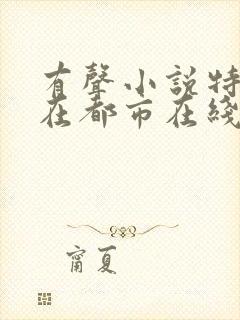 有聲小説特
在都市在綫
甯夏